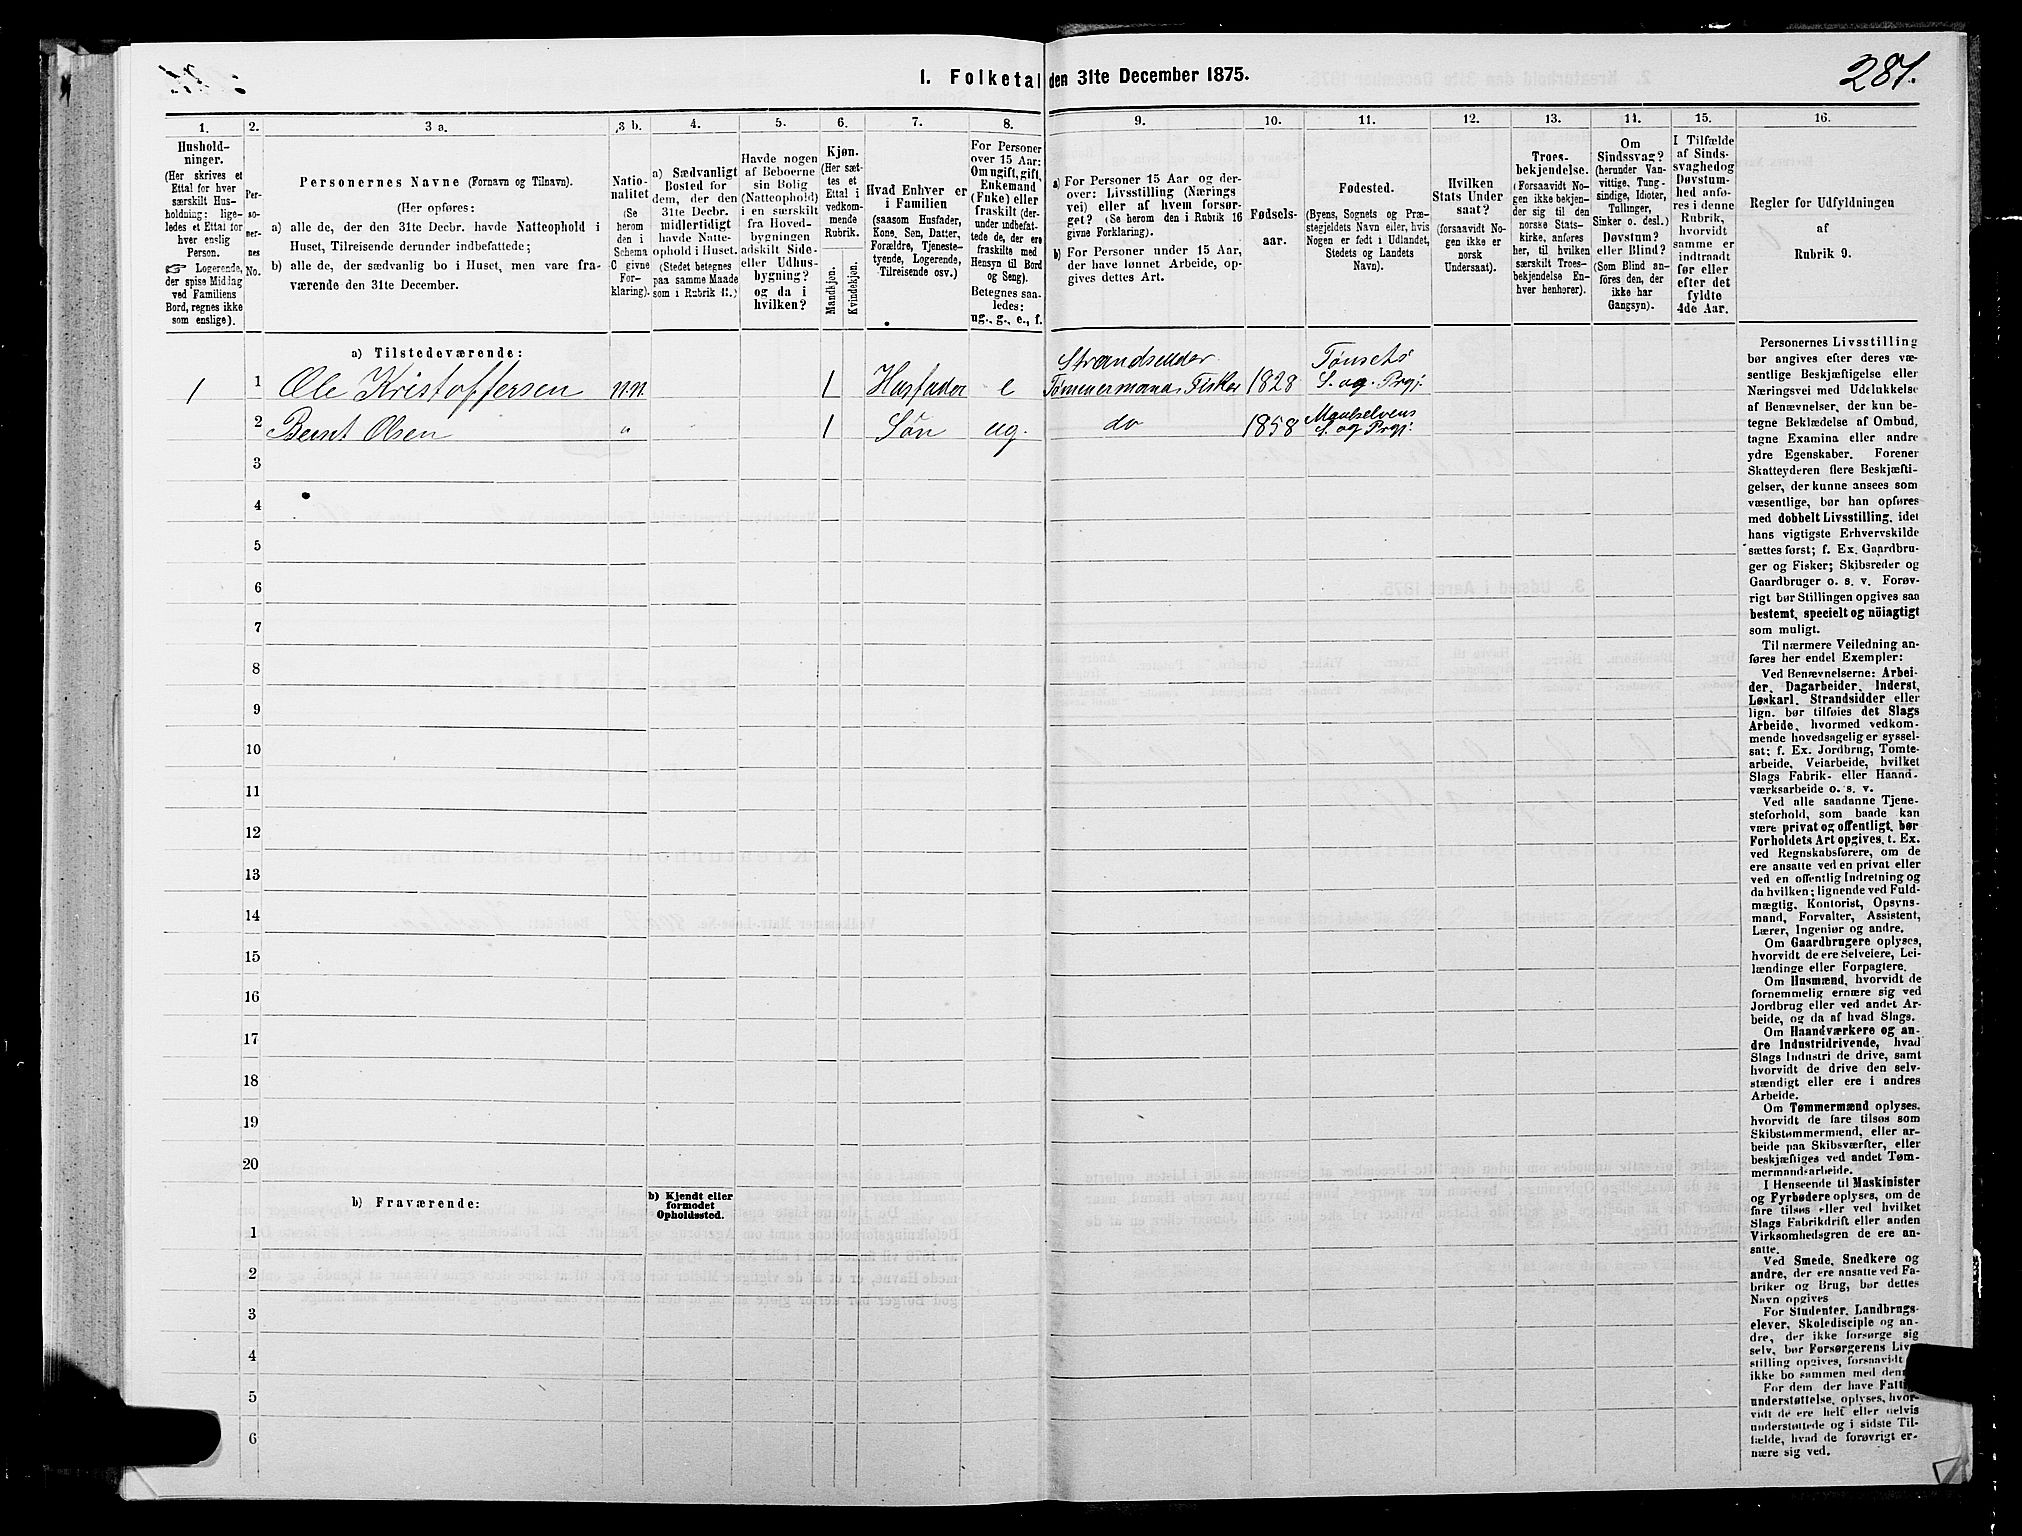 1. Folketal den 31te December 1875.
281.
1.
2.
3 a.
3 b.
4.
5.
6.
7.
8.
9.
10.
11.
12.
13.
14.
15.
16.
Hushold-
ninger.
(Her skrives et
Ettal for hver
særskilt Hus-
holdning; lige-
ledes et Ettal for
hver enslig
Person.
☞ Logerende,
der spise Middag
ved Familiens
Bord, regnes ikke
som enslige).
Per-
so-
ner-
nes
No.
Personernes Navne (Fornavn og Tilnavn).
(Her opføres:
a) alle de, der den 31te Decbr. havde Natteophold i
Huset, Tilreisende derunder indbefattede;
b) alle de, der sædvanlig bo i Huset, men vare fra-
værende den 31te December.
Natio-
nalitet
(Se
herom
den i
Schema
C givne
For-
klaring).
a) Sædvanligt
Bosted for
dem, der den
31te Decbr.
midlertidigt
havde Natte-
ophold i Huset.
(Stedet betegnes
paa samme Maade
som i Rubrik 11.)
Havde nogen
af Beboerne
sin Bolig
(Natteophold)
i en særskilt
fra Hoved-
bygningen
adskilt Side-
eller Udhus-
bygning?
og da i
hvilken?
Kjøn.
(Her sæt-
tes et
Ettal i
vedkom-
mende
Rubrik.
Mandkjøn.
Kvindekjøn.
Hvad Enhver er
i Familien
(saasom Husfader,
Kone, Søn, Datter,
Forældre, Tjeneste-
tyende, Logerende,
Tilreisende osv.)
For Personer
over 15 Aar:
Om ugift, gift,
Enkemand
(Enke) eller
fraskilt (der-
under indbefat-
tede de, der ere
fraskilte med
Hensyn til Bord
og Seng).
Betegnes saa-
ledes:
ug., g., e., f.
a) For Personer 15 Aar og der-
over: Livsstilling (Nærings
vei) eller af hvem forsør-
get? (Se herom den i Rubrik 16
givne Forklaring).
b) For Personer under 15 Aar,
der have lønnet Arbeide, op-
gives dettes Art.
Fødsels-
aar.
Fødested.
(Byens, Sognets og Præ-
stegjeldets Navn eller, hvis
Nogen er født i Udlandet,
Stedets og Landets
Navn).
Hvilken
Stats Under
saat?
(forsaavidt No-
gen ikke er
norsk
Undersaat).
Troes-
bekjendelse.
(Forsaavidt No-
gen ikke bekjen-
der sig til den
norske Stats-
kirke, anføres
her, til hvilken
særskilt Troes-
bekjendelse En-
hver henhører).
Om
Sindssvag?
(herunder Van-
vittige, Tung-
sindige, Idioter,
Tullinger,
Sinker o. desl.)
Døvstum?
eller Blind?
(Som Blind an-
føres den, der
ikke har
Gangsyn).
I Tilfælde
af Sinds-
svaghed og
Døvstum-
hed anfø-
res i denne
Rubrik,
hvorvidt
samme er
indtraadt
før eller
efter det
fyldte
4de Aar.
Regler for Udfyldningen
af
Rubrik 9.
a) Tilstedeværende:
1 1 Ole Kristoffersen n.n. 1 Husfader e Strandsidder Tømmermand, Fisker 1828 Tønsets S. og Prgj.
2 Berset Olsen " 1 Søn ug. do 1858 Maalselvens S. og Prgj.
3
4
5
6
7
8
9
10
11
12
13
14
15
16
17
18
19
20
b) Fraværende:
b) Kjendt eller
formodet
Opholdssted.
1
2
3
4
5
6
Personernes Livsstilling
bør angives efter deres væ-
sentlige Beskjæftigelse eller
Næringsvei med Udelukkelse
af Benævnelser, der kun be-
tegne Beklædelse af Ombud,
tagne Examina eller andre
ydre Egenskaber. Forener
Skatteyderen flere Beskjæfti-
gelser, der kunne ansees som
væsentlige, bør han opføres
med dobbelt Livsstilling, idet
hans vigtigste Erhvervskilde
sættes først; f. Ex. Gaardbru-
ger og Fisker; Skibsreder og
Gaardbruger o. s. v. Forøv-
rigt bør Stillingen opgives saa
bestemt, specielt og nöiagtigt
som muligt.
Til nærmere Veiledning an-
føres her endel Exempler:
Ved Benævnelserne: Arbei-
der, Dagarbeider, Inderst,
Løskarl, Strandsidder eller
lign. bør tilføies det Slags
Arbeide, hvormed vedkom-
mende hovedsagelig er syssel-
sat; f. Ex. Jordbrug, Tomte-
arbeide, Veiarbeide, hvilket
Slags Fabrik- eller Haand-
værksarbeide o. s. v.
Ved alle saadanne Tjene-
steforhold, som baade kan
være privat og offentligt, bør
Forholdets Art opgives, t. Ex.
ved Regnskabsførere, om de
ere ansatte ved en privat eller
ved en offentlig Indretning og
da hvilken; lignende ved Fuld-
mægtig, Kontorist, Opsyns-
mand, Forvalter, Assistent,
Lærer, Ingeniør og andre.
Om Gaardbrugere oplyses,
hvorvidt de ere Selveiere, Lei-
lændinge eller Forpagtere.
Om Husmænd, hvorvidt de
fornemmelig ernære sig ved
Jordbrug eller ved andet Ar-
beide, og da af hvad Slags.
Om Haandværkere og an-
dre Industridrivende, hvad
Slags Industri de drive, samt
hvorvidt de drive den selv-
stændigt eller ere i andres
Arbeide.
Om Tømmermænd oplyses,
hvorvidt de fare tilsøs som
Skibstømmermænd, eller ar-
beide paa Skibsværfter, eller
beskjæftiges ved andet Tøm-
mermandsarbeide.
I Henseende til Maskinister
og Fyrbødere oplyses, om de
fare tilsøs eller ved hvilket
Slags Fabrikdrift eller anden
Virksomhedsgren de ere an-
satte.
Ved Smede, Snedkere og
andre, der ere ansatte ved Fa-
briker og Brug, bør dettes
Navn opgives
For Studenter, Landbrugs-
elever, Skoledisciple og an-
dre, der ikke forsørge sig
selv, bør Forsørgerens Livs-
stilling opgives, forsaavidt
ikke bo sammen med denne.
For dem, der have Fattig-
understøttelse, oplyses, hvor-
vidt de ere helt eller delvis
understøttede og i sidste Til-
fælde, hvad de forøvrigt er-
nære sig ved.